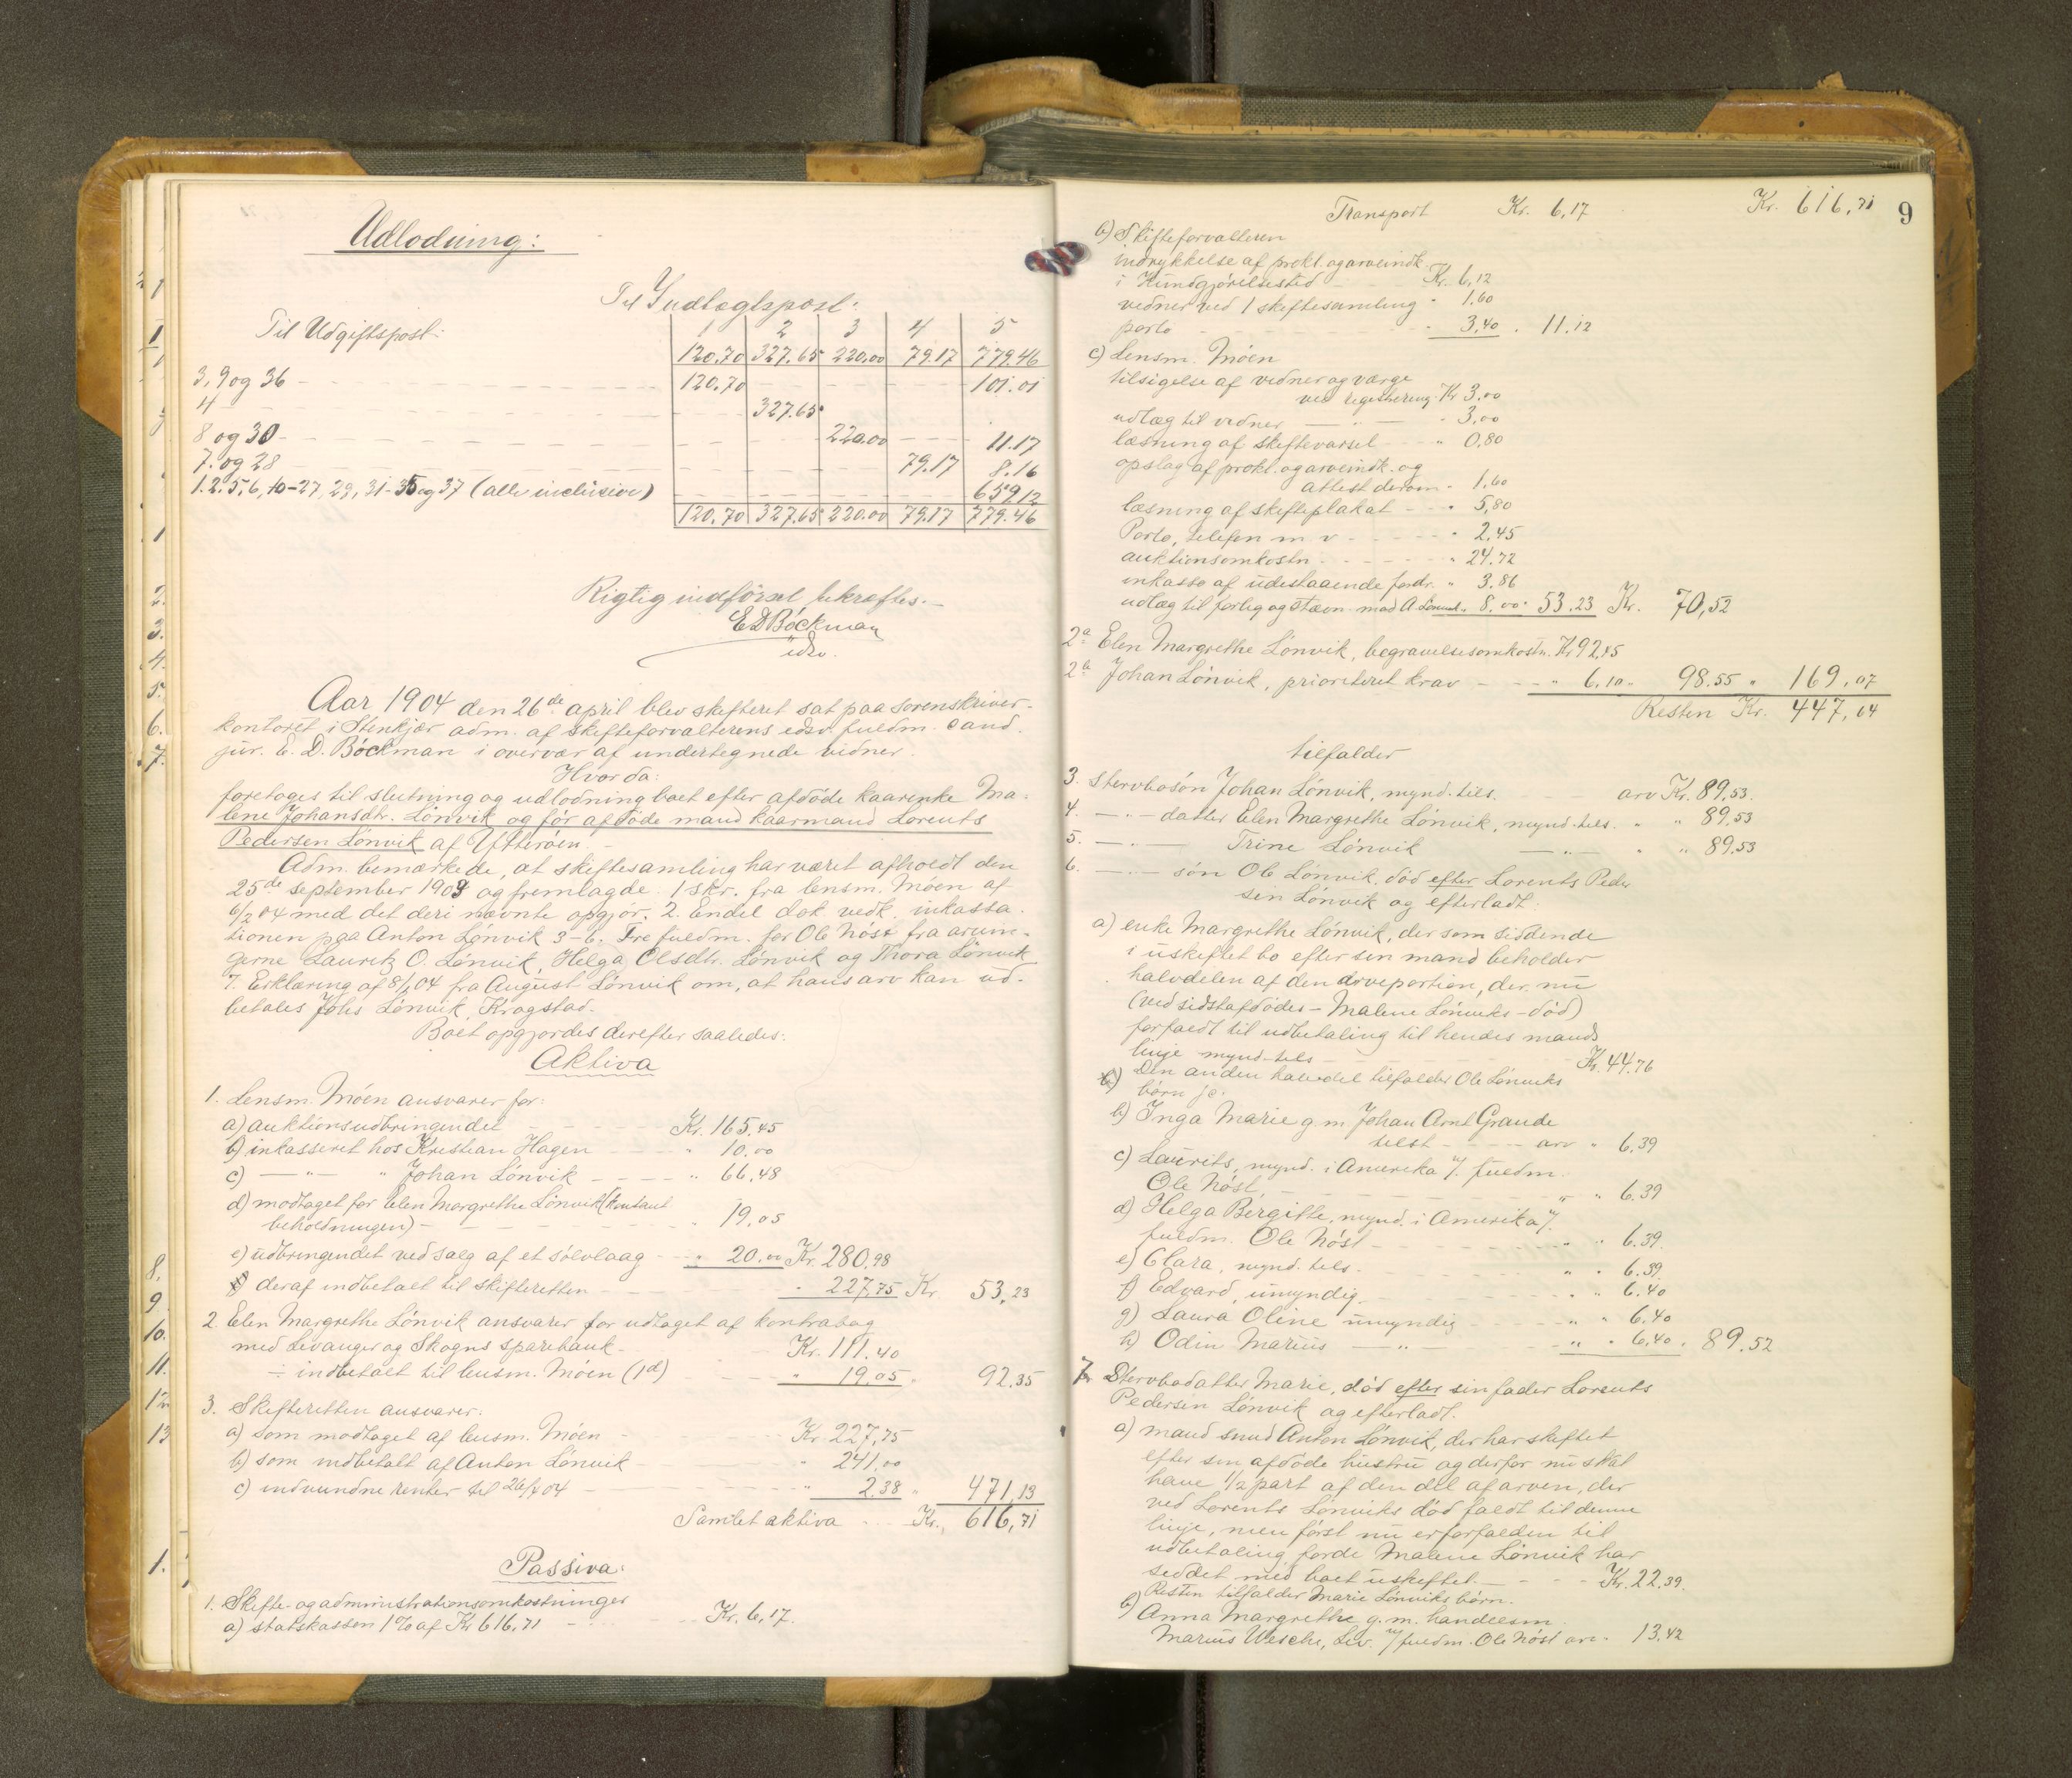 Udlodning:
Til Indtægtspost:
Til Udgiftspost:
1 2 3 4 5
120.70 327.65 220.00 79.17 779.46
3, 9 og 36 120.70 101.01
4 327.65
8 og 30 220.00 11.17
7. og 28 79.17 8.16
1. 2. 5, 6, 10-27, 29, 31-35 og 37 (alle inclusive) 659.12
120.70 327.65 220.00 79.17 779.46
Rigtig indførsel bekræftes.
E D Böckman
edsv.
Aar 1904 den 26de april blev skifteret sat paa sorenskriver-
kontoret i Stenkjær adm. af skifteforvalterens edsv. fuldm. cand.
jur. E. D. Böckman i overvær af undertegnede vidner.
Hvor da:
foretoges til slutning og udlodning boet efter afdøde kaarenke Ma-
lene Johansdtr. Lönvik og før afdøde mand kaarmand Lorents
Pedersen Lönvik af Ytterøen.
Adm. bemærkede, at skiftesamling har været afholdt den
25de september 1903 og fremlagde. 1 skr. fra lensm. Möen af
6/2 04 med det deri nævnte opgjør. 2. Endel dok vedk. inkassa-
tionen paa Anton Lönvik 3-6. Fre fuldm. for Ole Nöst fra arvin-
gerne Lauritz O. Lönvik, Helga Olsdtr. Lönvik og Thora Lönvik
7. Erklæring af 8/1 04 fra August Lönvik om, at hans arv kan ud-
betales Johs Lönvik, Kragstad.
Boet opgjordes derefter saaledes:
Aktiva
1. Lensm. Möen ansvarer for:
a) auktionsudbringendet Kr. 165.45
b) inkasseret hos Kristian Hagen " 10.00
c) — " — " Johan Lönvik " 66.48
d) modtaget for Elen Margrethe Lönvik (kontant
beholdningen) " 19.05
e) udbringendet ved salg af et sölvlaag " 20.00 Kr. 280.98
f) deraf indbetalt til skifteretten " 227.75 Kr. 53.23
2. Elen Margrethe Lönvik ansvarer for udtaget af kontrabog
med Levanger og Skogns sparebank Kr. 111.40
÷ indbetalt til lensm. Möen (1d) " 19.05 " 92.35
3. Skifteretten ansvarer:
a) som modtaget af lensm. Möen Kr. 227.75
b) som indbetalt af Anton Lönvik " 241.00
c) indvundne renter til 26/4 04 " 2.38 " 471.13
Samlet aktiva Kr. 616.71
Passiva:
1. Skifte- og administrationsomkostninger
a) statskassen 1% af Kr 616.71 Kr. 6,17.
9
Transport Kr. 6,17 Kr. 616,71
b) Skifteforvalteren
indrykkelse af prokl. og arveindk.
i Kundgjörelsestid Kr. 6,12
vidner ved 1 skiftesamling " 1.60
porto " 3.40 . 11.12
c) Lensm. Möen
tilsigelse af vidner og værge
ved registrering Kr 3.00
udlæg til vidner — " — " 3,00
læsning af skiftevarsel " 0,80
opslag af prokl. og arveindk. og
attest derom " 1.60
læsning af skifteplakat " 5,80
Porto, telefon m v " 2.45
auktionsomkostn. " 24.72
inkasso af udestaaende fordr. " 3.86
udlæg til forlig og stævn. mod A. Lönvik " 8.00 " 53.23 Kr. 70,52
2a Elen Margrethe Lönvik, begravelsesomkostn. Kr 92.45
2b Johan Lönvik, prioriteret krav " 6.10 " 98.55 " 169.07
Resten Kr. 447,64
tilfalder
3. Stervbosön Johan Lönvik, mynd. tils. arv Kr. 89,53.
4. — " — datter Elen Margrethe Lönvik, mynd. tils. " " 89,53
5. — " — Trine Lönvik — " — " " 89.53
6. — " — sön Ole Lönvik, död efter Lorents Peder
sen Lönvik og efterladt:
a) enke Margrethe Lönvik, der som siddende
i uskiftet bo efter sin mand beholder
halvdelen af den arveportion, der nu
(ved sidstafdødes - Malene Lönviks - död)
forfaldt til udbetaling til hendes mands
linje mynd. tils Kr. 44.76
Den anden halvdel tilfalder Ole Lönviks
börn je:
b) Inga Marie g. m Johan Arnt Grande
tilst arv " 6.39
c) Laurits, mynd. i Amerika v/. fuldm.
Ole Nöst. " " 6.39
d) Helga Bergitte, mynd. i Amerika v/.
fuldm. Ole Nöst " " 6.39.
e) Clara, mynd. tils. " " 6.39.
f) Edvard, umyndig " " 6.40
g) Laura Oline umyndig " " 6.40
h) Odin Marius — " — " " 6.40 . 89.52
7. Stervbodatter Marie, död efter sin fader Lorents
Pedersen Lönvik og efterladt.
a) mand smed Anton Lönvik, der har skiftet
efter sin afdöde hustru og derfor nu skal
have 1/2 part af den del af arven, der
ved Lorents Lönviks död faldt til denne
linje, men först nu er forfalden til
udbetaling fordi Malene Lönvik har
siddet med boet uskiftet. Kr. 22.39.
Resten tilfalder Marie Lönviks börn.
b) Anna Margrethe g. m. handelsm.
Marius Wesche, Lev. v/ fuldm. Ole Nöst arv. 13,42